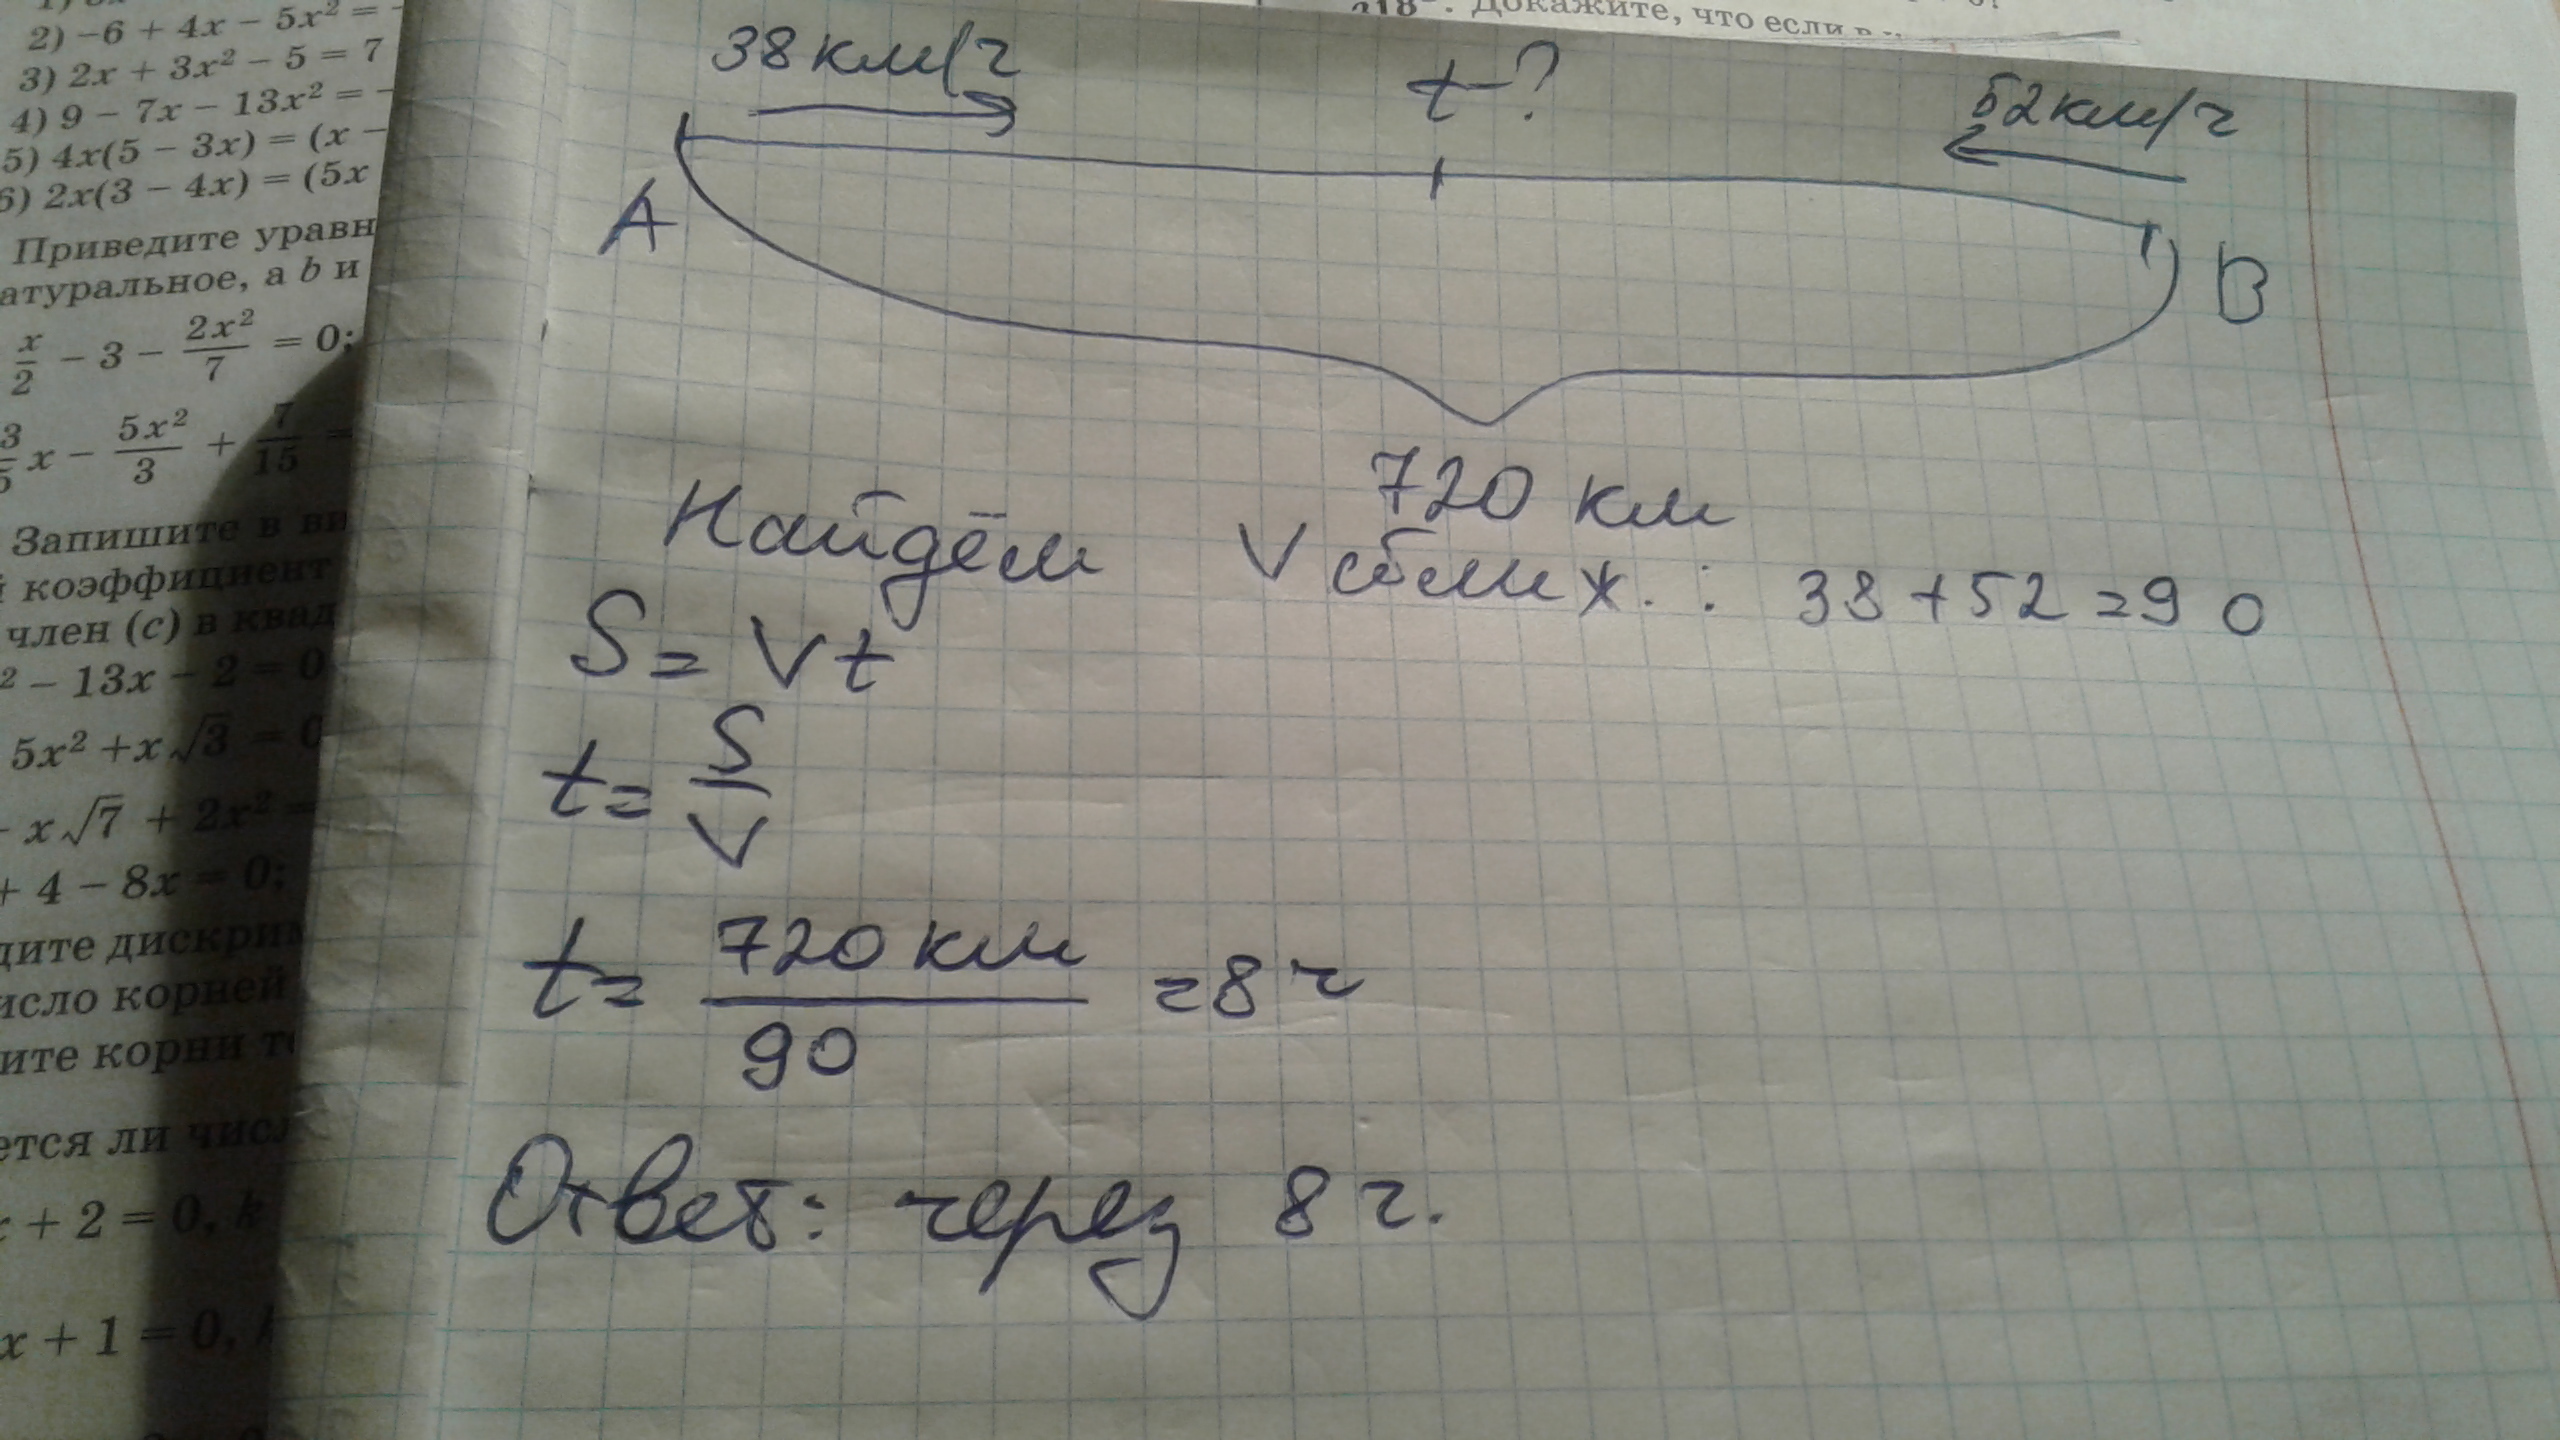 2) −6 + 4x − 5x² = −
3) 2x + 3x² − 5 = 7
4) 9 − 7x − 13x² = −
5) 4x(5 − 3x) = (x −
6) 2x(3 − 4x) = (5x
Приведите уравн
атуральное, а b и
x/2 − 3 − 2x²/7 = 0;
3/5 x − 5x²/3 + 7/15 =
Запишите в ви
й коэффициент
член (c) в квад
² − 13x − 2 = 0
5x² + x√3 = 0
− x√7 + 2x² =
+ 4 − 8x = 0;
дите дискрим
исло корней
ите корни
ется ли числ
x + 2 = 0, k
x + 1 = 0, k
218 . Докажите, что если в
38 км/ч
t − ?
52 км/ч
A
B
720 км
Найдём V сближ. : 38 + 52 = 90
S = Vt
t = S/V
t = 720 км/90 = 8 ч
Ответ: через 8 ч.